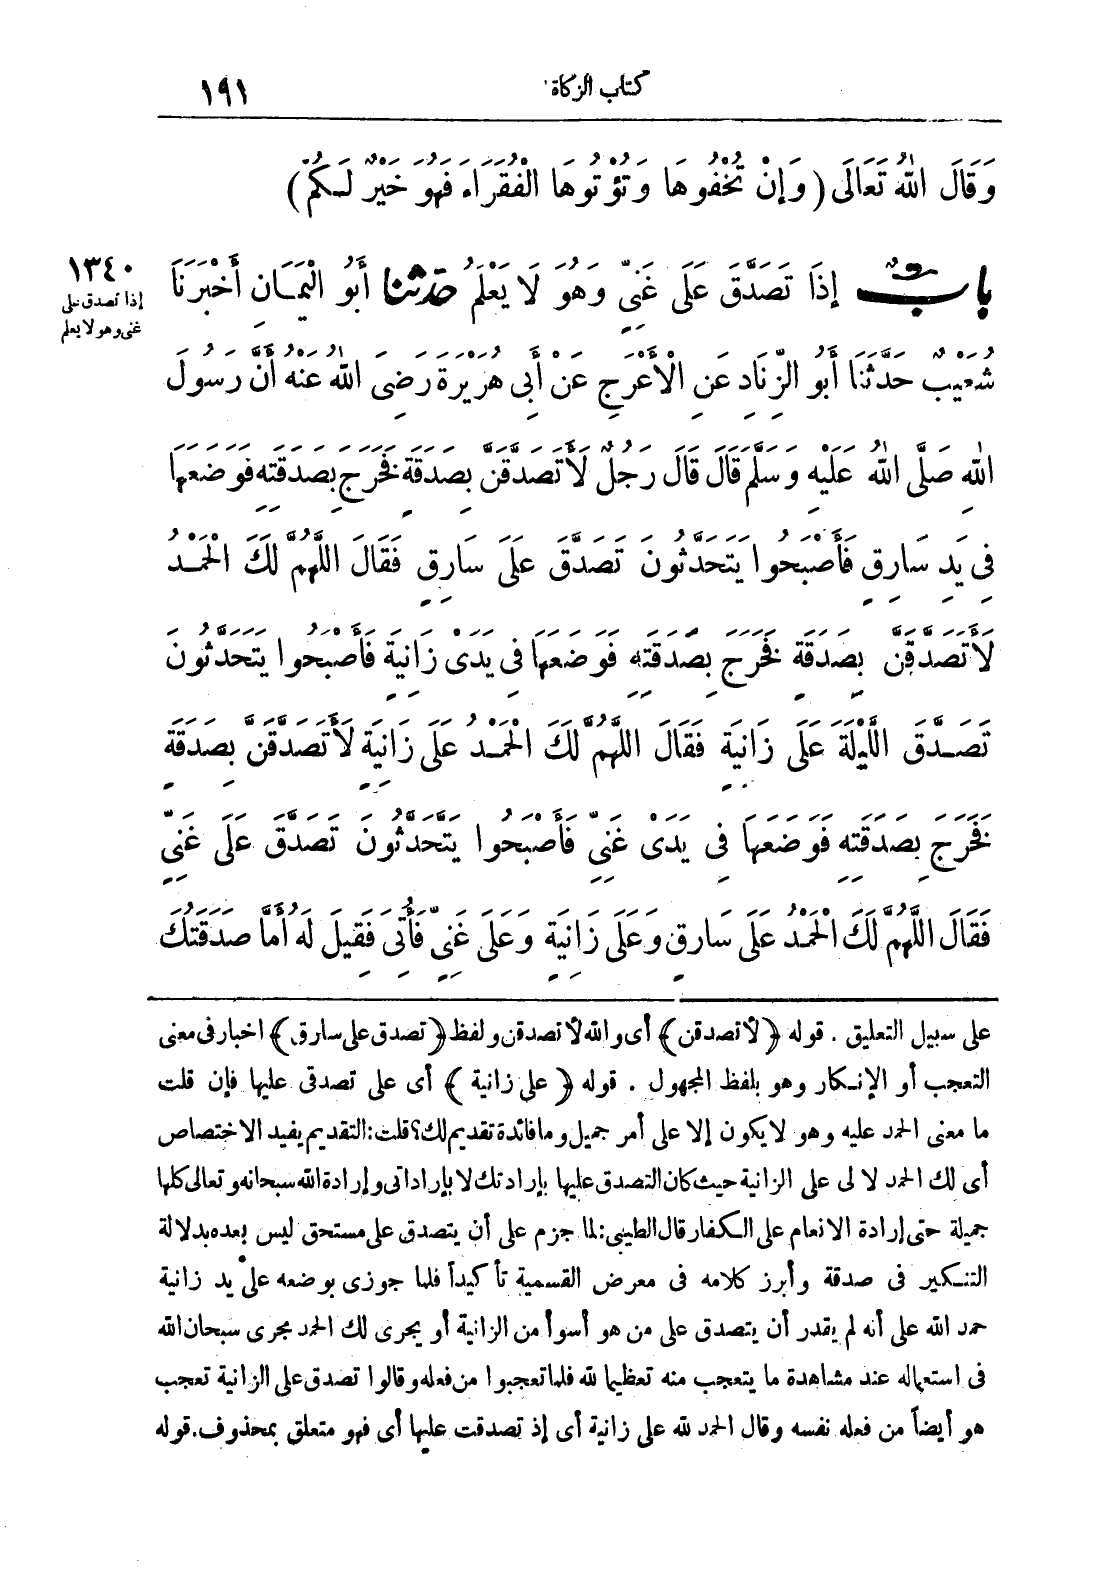 كتاب الزكاة
١٩١
وَقَالَ اللّٰهُ تَعَالَى (وَإِنْ تُخْفُوهَا وَتُؤْتُوهَا الْفُقَرَاءَ فَهُوَ خَيْرٌ لَكُمْ)
١٣٤٠
إذا تصدق على
غنى وهو لا يعلم
بَابٌ إِذَا تَصَدَّقَ عَلَى غَنِىٍّ وَهُوَ لَا يَعْلَمُ حَدَّثَنَا أَبُو الْيَمَانِ أَخْبَرَنَا
شُعَيْبٌ حَدَّثَنَا أَبُو الزِّنَادِ عَنِ الْأَعْرَجِ عَنْ أَبِى هُرَيْرَةَ رَضِىَ اللّٰهُ عَنْهُ أَنَّ رَسُولَ
اللّٰهِ صَلَّى اللّٰهُ عَلَيْهِ وَسَلَّمَ قَالَ قَالَ رَجُلٌ لَأَتَصَدَّقَنَّ بِصَدَقَةٍ فَخَرَجَ بِصَدَقَتِهِ فَوَضَعَهَا
فِى يَدِ سَارِقٍ فَأَصْبَحُوا يَتَحَدَّثُونَ تَصَدَّقَ عَلَى سَارِقٍ فَقَالَ اللَّهُمَّ لَكَ الْحَمْدُ
لَأَتَصَدَّقَنَّ بِصَدَقَةٍ فَخَرَجَ بِصَدَقَتِهِ فَوَضَعَهَا فِى يَدَىْ زَانِيَةٍ فَأَصْبَحُوا يَتَحَدَّثُونَ
تَصَدَّقَ اللَّيْلَةَ عَلَى زَانِيَةٍ فَقَالَ اللَّهُمَّ لَكَ الْحَمْدُ عَلَى زَانِيَةٍ لَأَتَصَدَّقَنَّ بِصَدَقَةٍ
فَخَرَجَ بِصَدَقَتِهِ فَوَضَعَهَا فِى يَدَىْ غَنِىٍّ فَأَصْبَحُوا يَتَحَدَّثُونَ تَصَدَّقَ عَلَى غَنِىٍّ
فَقَالَ اللَّهُمَّ لَكَ الْحَمْدُ عَلَى سَارِقٍ وَعَلَى زَانِيَةٍ وَعَلَى غَنِىٍّ فَأُتِىَ فَقِيلَ لَهُ أَمَّا صَدَقَتُكَ
على سبيل التعليق . قوله ﴿لأتصدقن﴾ أى والله لأتصدقن ولفظ ﴿تصدق على سارق﴾ اخبار فى معنى
التعجب أو الإنكار وهو بلفظ المجهول . قوله ﴿على زانية﴾ أى على تصدقى عليها فإن قلت
ما معنى الحمد عليه وهو لا يكون إلا على أمر جميل وما فائدة تقديم لك؟ قلت: التقديم يفيد الاختصاص
أى لك الحمد لا لى على الزانية حيث كان التصدق عليها بإرادتك لا بإراداتى وإرادة الله سبحانه وتعالى كلها
جميلة حتى إرادة الانعام على الكفار قال الطيبى: لما جزم على أن يتصدق على مستحق ليس بعده بدلالة
التنكير فى صدقة وأبرز كلامه فى معرض القسمية تأكيداً فلما جوزى بوضعه على يد زانية
حمد الله على أنه لم يقدر أن يتصدق على من هو أسوأ من الزانية أو يجرى لك الحمد مجرى سبحان الله
فى استعماله عند مشاهدة ما يتعجب منه تعظيما لله فلما تعجبوا من فعله وقالوا تصدق على الزانية تعجب
هو أيضاً من فعله نفسه وقال الحمد لله على زانية أى إذ تصدقت عليها أى فهو متعلق بمحذوف. قوله